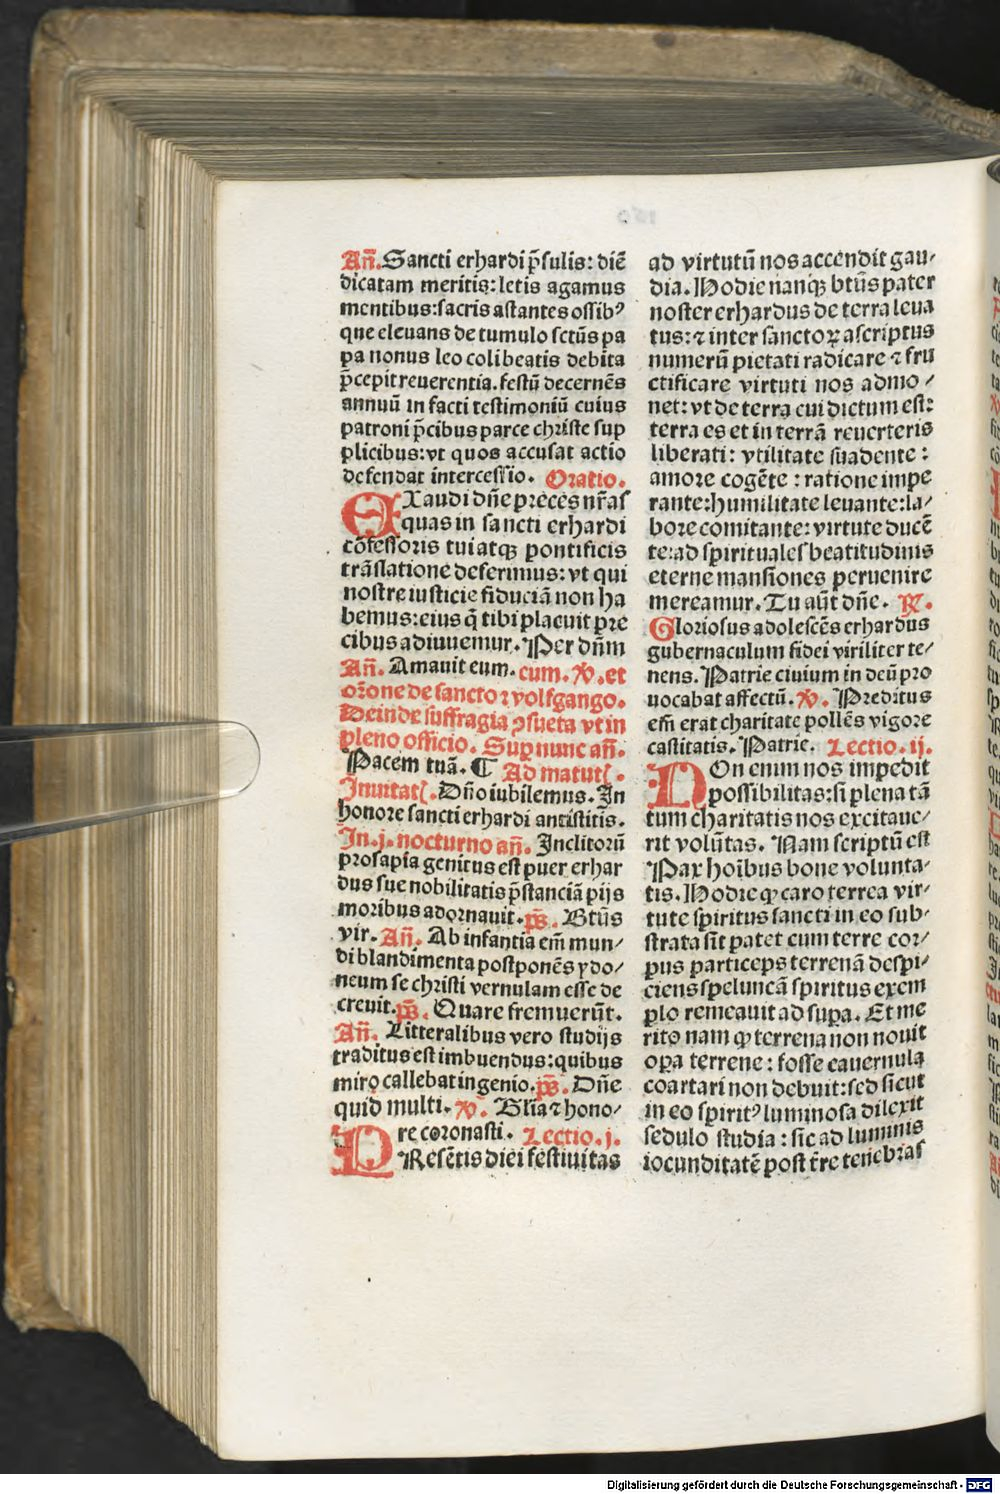 Añ. Sancti erhardi p̄sulis: diē
dicatam meritis: letis agamus
mentibus: sacris astantes ossibꝰ
que eleuans de tumulo sctūs pa
pa nonus leo coli beatis debita
p̄cepit reuerentia. festū decernēs
annuū in facti testimoniū cuius
patroni p̄cibus parce christe sup
plicibus: vt quos accusat actio
defendat intercessio. Oratio.
EXaudi dn̄e preces nr̄as
quas in sancti erhardi
cōfessoris tui atqꝫ pontificis
trāslatione deferimus: vt qui
nostre iusticie fiduciā non ha
bemus: eius q̄ tibi placuit pre
cibus adiuuemur. Per dn̄m
Añ. Amauit eum. cum. ꝟ. et
or̄one de sancto ⁊ volfgango.
Deinde suffragia ꝯsueta vt in
pleno officio. Suꝑ nunc añ.
Pacem tuā. ¶ Ad matutꝭ.
Inuitatꝭ. Dn̄o iubilemus. In
honore sancti erhardi antistitis.
In. j. nocturno añ. Inclitorū
prosapia genitus est puer erhar
dus sue nobilitatis p̄stanciā pijs
moribus adornauit. ps̄. Btūs
vir. Añ. Ab infantia em̄ mun⸗
di blandimenta postponēs ydo⸗
neum se christi vernulam esse de
creuit. ps̄. Quare fremuerūt.
Añ. Litteralibus vero studijs
traditus est imbuendus: quibus
miro callebat ingenio. ps̄. Dn̄e
quid multi. ꝟ. Gl̄ia ⁊ hono⸗
re coronasti. Lectio. j.
PResētis diei festiuitas
ad virtutū nos accendit gau⸗
dia. Hodie nanqꝫ btūs pater
noster erhardus de terra leua
tus: ⁊ inter sanctoꝝ ascriptus
numerū pietati radicare ⁊ fru
ctificare virtuti nos admo⸗
net: vt de terra cui dictum est:
terra es et in terrā reuerteris
liberati: vtilitate suadente:
amore cogēte: ratione impe
rante: humilitate leuante: la⸗
bore comitante: virtute ducē
te: ad spirituales beatitudinis
eterne mansiones peruenire
mereamur. Tu aūt dn̄e. ℟.
Gloriosus adolescēs erhardus
gubernaculum fidei viriliter te⸗
nens. Patrie ciuium in deū pro
uocabat affectū. ꝟ. Preditus
em̄ erat charitate pollēs vigore
castitatis. Patrie. Lectio. ij.
NOn enim nos impedit
possibilitas: si plena tā
tum charitatis nos excitaue⸗
rit volūtas. Nam scriptū est
Pax hoībus bone volunta⸗
tis. Hodie ꝙ caro terrea vir⸗
tute spiritus sancti in eo sub⸗
strata sit patet cum terre cor⸗
pus particeps terrenā despi⸗
ciens speluncā spiritus exem
plo remeauit ad supa. Et me
rito nam ꝙ terrena non nouit
oꝑa terrene: fosse cauernula
coartari non debuit: sed sicut
in eo spiritꝰ luminosa dilexit
sedulo studia: sic ad luminis
iocunditatē post tr̄e tenebras
Digitalisierung gefördert durch die Deutsche Forschungsgemeinschaft - DFG